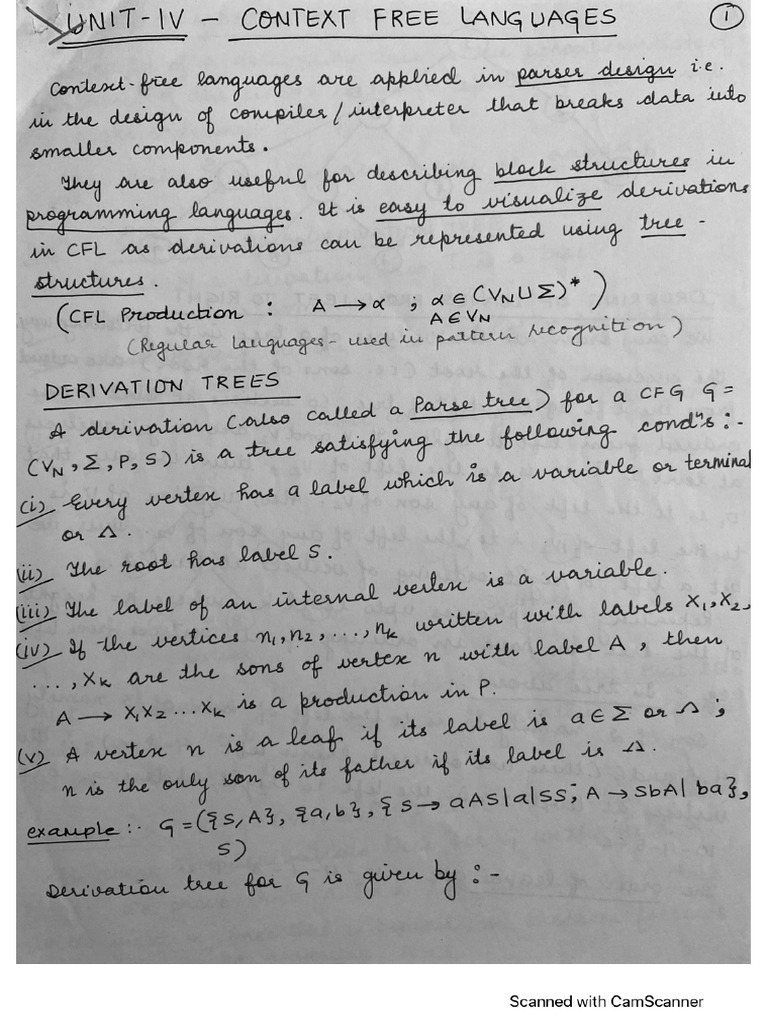 UNIT-IV - CONTEXT FREE LANGUAGES 1
Context-free languages are applied in parser design i.e.
in the design of compiler/interpreter that breaks data into
smaller components.
They are also useful for describing block structures in
programming languages. It is easy to visualize derivations
in CFL as derivations can be represented using tree -
structures.
(CFL Production : A → α ; α ∈ (VN ∪ Σ)*)
A ∈ VN
(Regular languages - used in pattern recognition)
DERIVATION TREES
A derivation (also called a Parse tree) for a CFG G =
(VN, Σ, P, S) is a tree satisfying the following condns :-
(i) Every vertex has a label which is a variable or terminal
or Λ.
(ii) The root has label S.
(iii) The label of an internal vertex is a variable.
(iv) If the vertices n1, n2, ..., nk written with labels X1, X2,
..., Xk are the sons of vertex n with label A, then
A → X1X2...Xk is a production in P.
(v) A vertex n is a leaf if its label is a ∈ Σ or Λ ;
n is the only son of its father if its label is Λ.
example :- G = ({S, A}, {a, b}, {S → aAS|a|SS; A → SbA|ba},
S)
Derivation tree for G is given by :-
Scanned with CamScanner